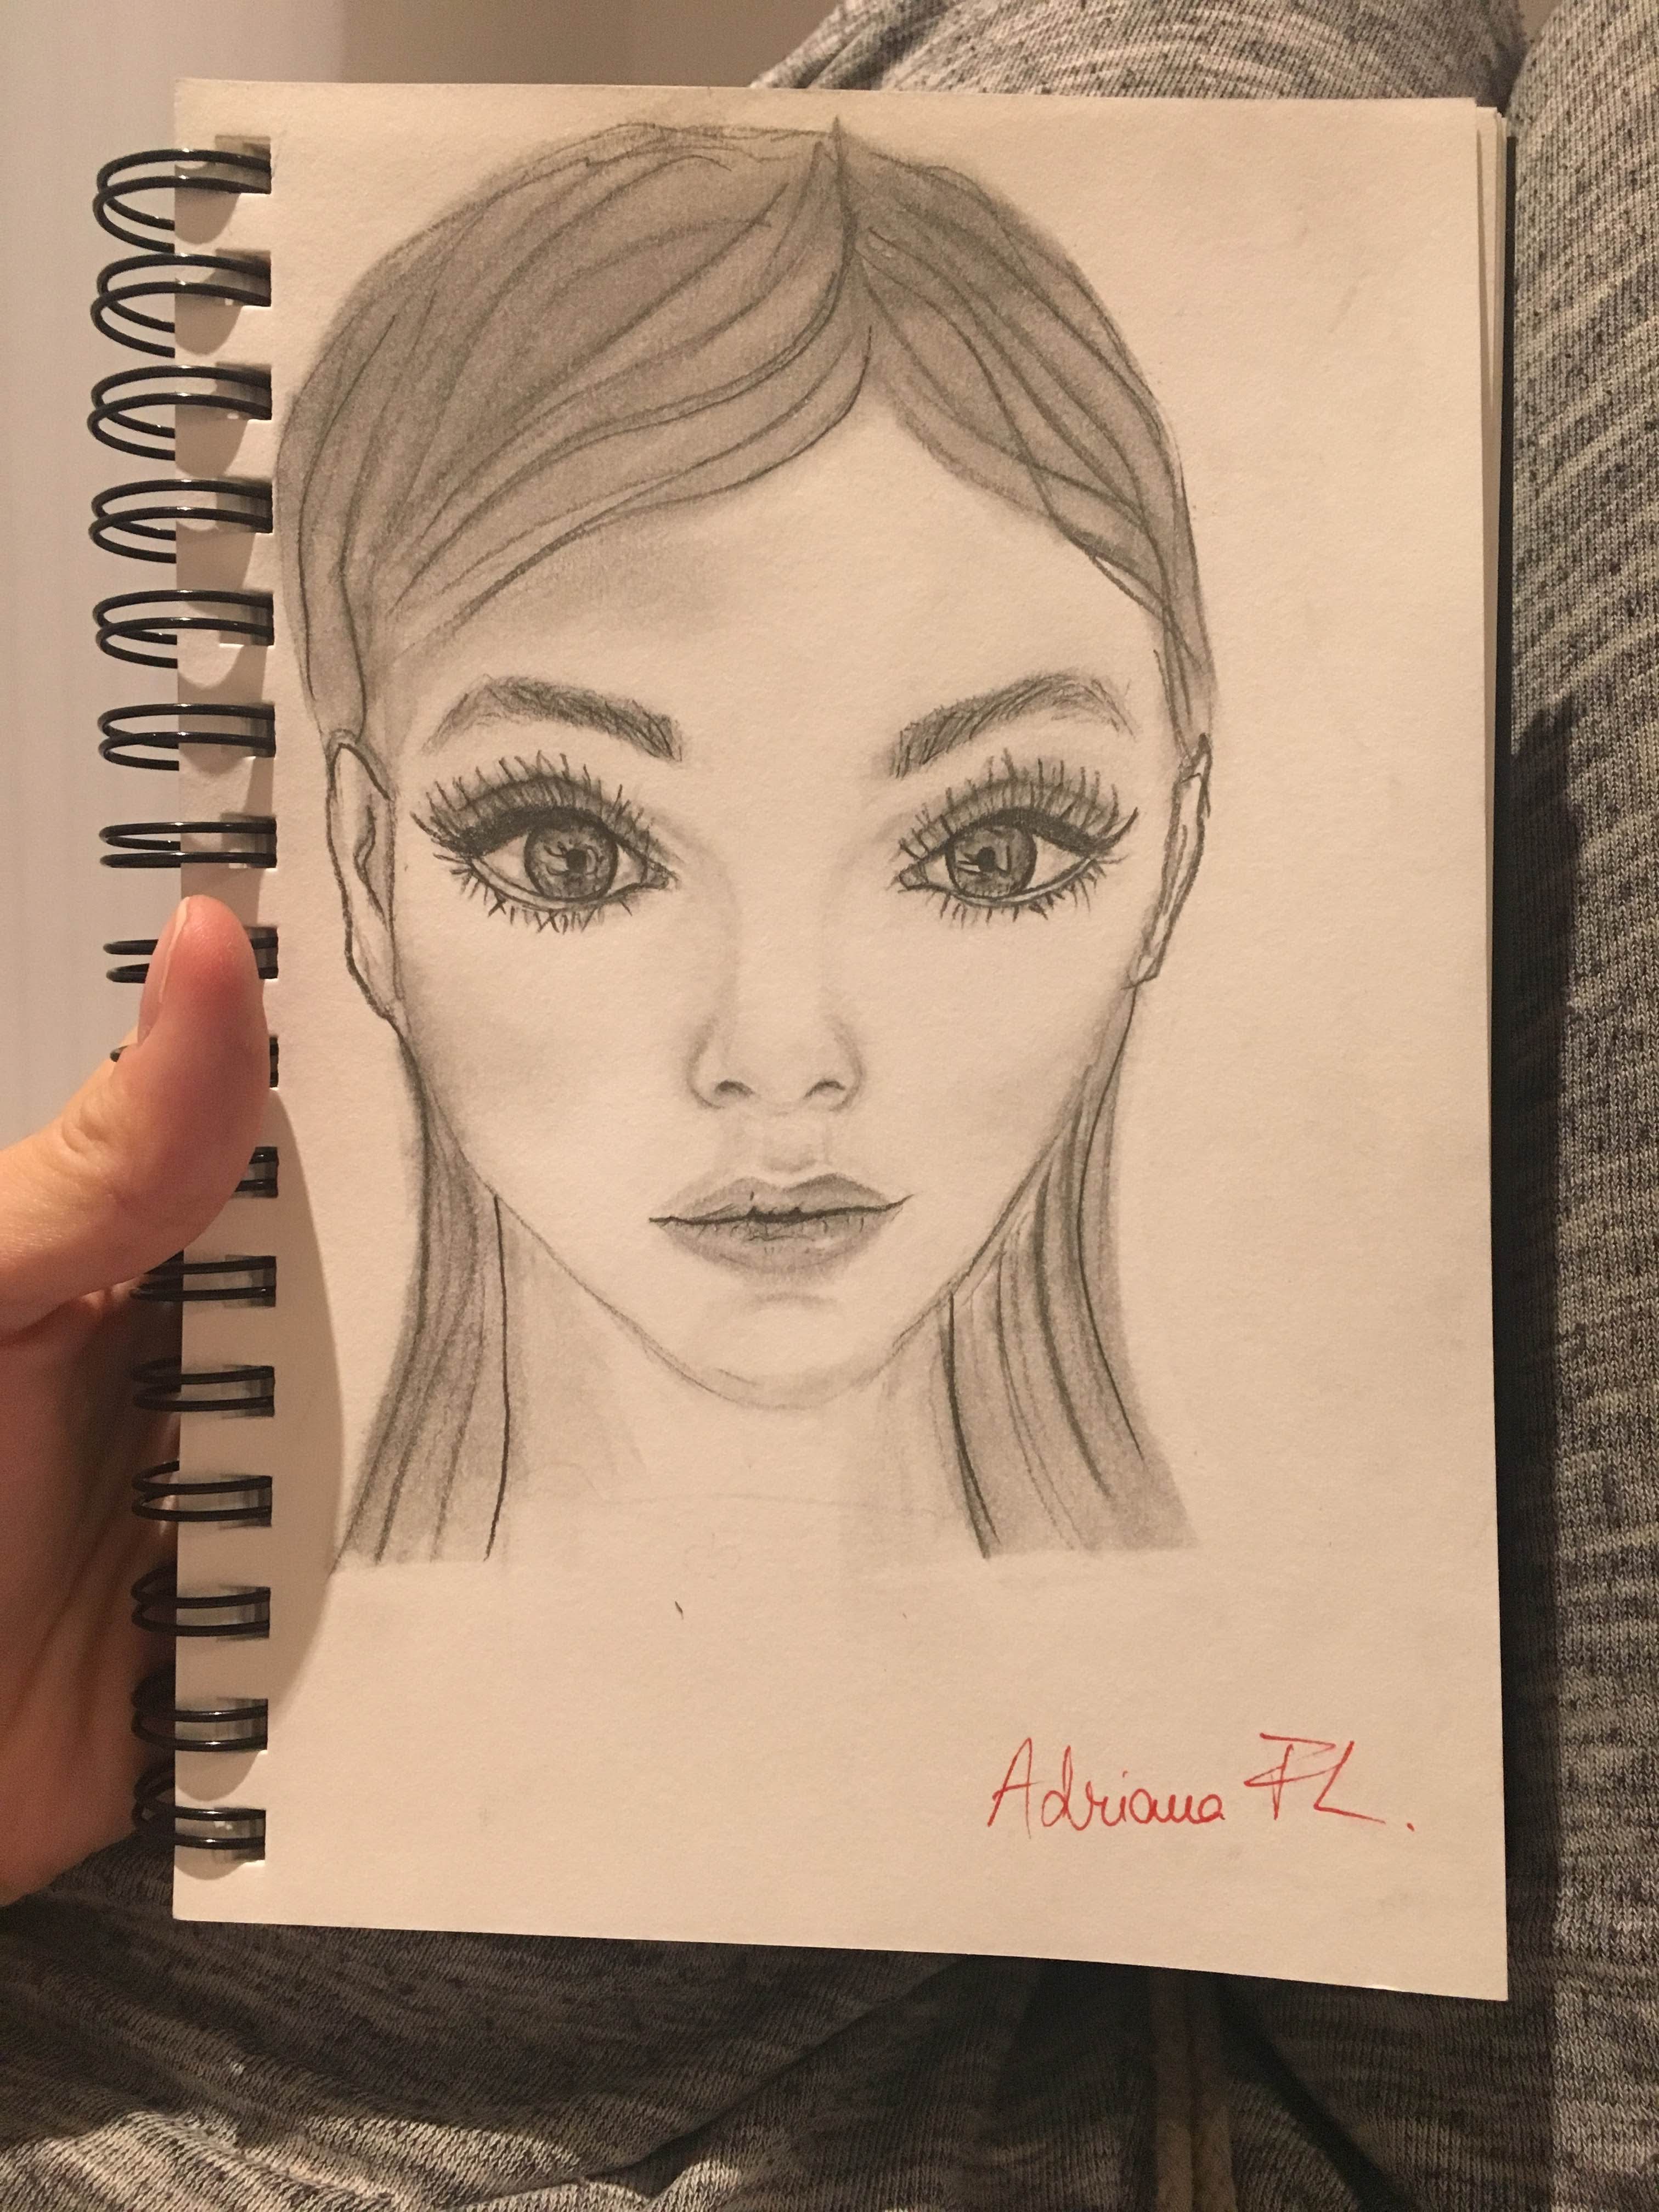 Adriana PL.